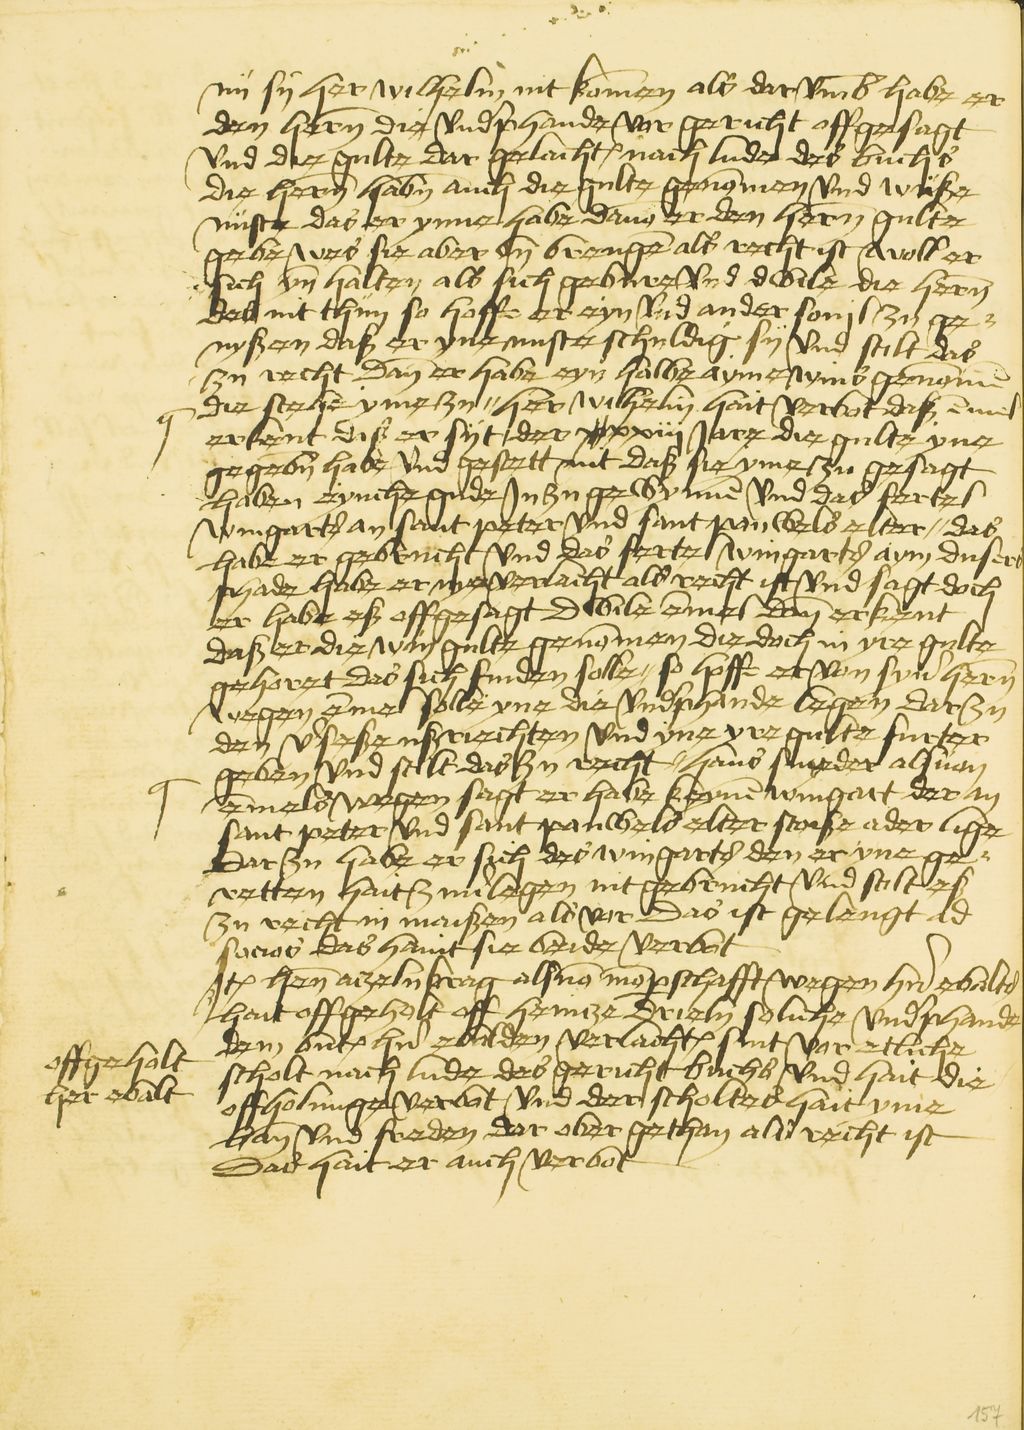 nu sy her wilhelm nit komen als dar vmb habe er
den hern die vndphande vor gericht offgesagt
vnd die gulte dar gelacht nach lude des buchs
die hern habn auch die gulte genomen vnd wuße
nuste das er ynne habe davo er den hern gulte
gebe wes sie aber yn brengē als recht ist woll er
sich yn halten als sich gebure vnd dwile die hern
des nit thun so hoffe er eyn vnd ander somil zu ge-
nyßen daß er yne nuste schuldig sy vnd stilt das
zu recht dan er habe eyn halbe ayme wins genomē
die stehe yme zu her wilhelm hait verbot daß emel
erkent diß er sijt der xxiiij Jare die gulte yne
gegebn habe vnd gesett mit daß sie yme zu gesagt
haben eyniche gude In zu gewynnē vnd das fertel
wingarts an sant peter vnd sant pauwels elter das
habe er gebrucht vnd das fertel wingarts aym dusers
phade habe er nye verlacht als recht ist vnd sagt doch
er habe eß offgesagt dwile emel dan erkent
daß er die win gulte genomen die doch in yre gulte
gehoret das sich finden solle so hoff er von syn hern
wegen emel solle yne die vndphande legen dar zu
den vseße ußriechten vnd yne yre gulte furter
geben vnd stilt das zu recht hans snyder als von
emels wegen sagt er habe keynē wingart der an
sant peter vnd sant pauwels elter stoiße ader lige
dar zu habe er sich des wingarts den er yne ge-
retten hait zuuerlegen nit gebrucht vnd stilt eß
zu recht in maißen als vor das ist gelengt ad
socios das haint sie beide verbot
Jt hen aczeln krag als mo mopschafft wegen hn ebalts
hait offgeholt off heincze drieln soliche vndphande
dem bůt hn ebalden verlacht sint vor etliche
scholt nach lude des gericht buchs vnd hait die
offholunge verbot vnd der scholtes hait yme
ban vnd freden dar ober gethan als recht ist
das hait er auch verbot
offgeholt
her ebalt
157